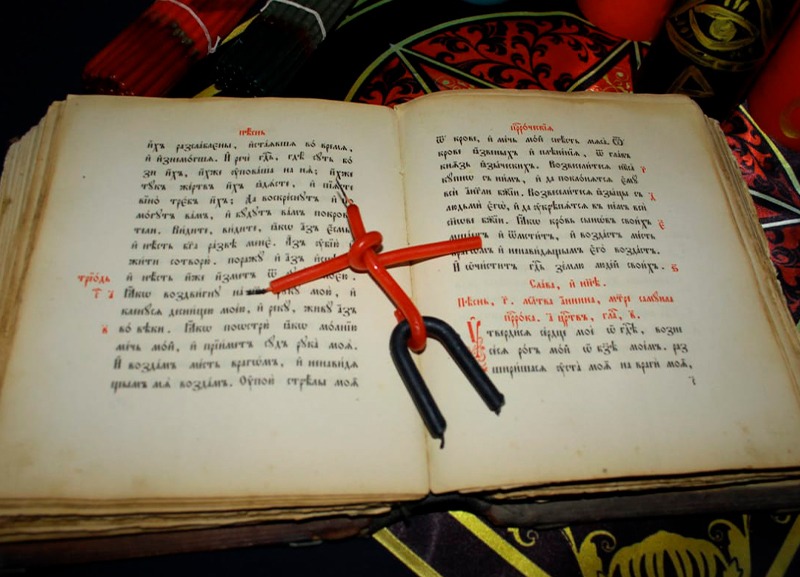 пѣснь
и҆́хъ разслаблены, и҆стаѧвша во вре́мѧ,
и҆ и҆знемо́гша. И҆ речѐ гдⷭ҇ь, гдѣ̀ сꙋ́ть бо
зи и҆́хъ, и҆̀хже ᲂу҆пова́ша на нѧ̀; и҆̀хже
тꙋ́къ же́ртвъ и҆́хъ ꙗ҆дѧ́сте, и҆
вїно̀ тре́бъ и҆́хъ; да воскре́снꙋтъ и҆
помо́гꙋтъ ва́мъ, и҆ бꙋ́дꙋтъ ва́мъ
Ви́дите, ви́дите, ꙗ҆́кѡ а҆́зъ є҆́смь
и҆ нѣ́сть бг҃а ра́звѣ менє̀. А҆́зъ ᲂу҆бїю̀
жи́ти сотворю̀. поражꙋ̀ и҆ а҆́зъ
и҆ нѣ́сть и҆́же и҆́зметъ ѿ
Ꙗ҆́кѡ воздви́гнꙋ на мою̀, и҆
кленꙋ́сѧ десни́цею мое́ю, и҆ рекꙋ̀, живꙋ̀ а҆́зъ
во вѣ́ки. Ꙗ҆́кѡ поѡстрю̀ ꙗ҆́кѡ мо́лнїю
ме́чь мо́й, и҆ прїи́метъ сꙋ́дъ рꙋка̀ моѧ̀.
И҆ возда́мъ ме́сть врагѡ́мъ, и҆ ненави́дѧ
щымъ мѧ̀ возда́мъ. Оу҆пою̀ стрѣ́лы моѧ̀
прⷪ҇ро́ческїѧ
ѿ кро́ве, и҆ ме́чь мо́й снѣ́сть мѧса̀. Ѿ
кро́ве ꙗ҆́звеныхъ и҆ плѣне́нїѧ, ѿ гла́въ
кнѧ́зь ꙗ҆зы́ческихъ. Возвесели́тесѧ нб҃са̀
кꙋ́пнѡ съ ни́мъ, и҆ да поклонѧ́тсѧ є҆мꙋ̀
всѝ а҆́гг҃ли бж҃їи. Возвесели́тесѧ ꙗ҆зы́цы съ
людьмѝ є҆гѡ̀, и҆ да ᲂу҆крѣпѧ́тсѧ въ не́мъ всѝ
сн҃ове бж҃їи. Ꙗ҆́кѡ кро́вь сынѡ́въ свои́хъ
и҆ ѿмсти́тъ, и҆ возда́стъ ме́сть
и҆ ненави́дѧщымъ є҆го̀ возда́стъ.
И҆ ѡ҆чи́ститъ гдⷭ҇ь зе́млю люде́й свои́хъ.
Сла́ва, и҆ нн҃ѣ.
Пѣ́снь, г҃. мл҃тва а҆́ннина, мт҃ре самꙋи́ла
прⷪ҇ро́ка. а҃ ца́рствъ, гла́, в҃.
Оу҆тверди́сѧ се́рдце моѐ ѡ҆ гдⷭ҇ѣ, возне
се́сѧ ро́гъ мо́й ѡ҆ бз҃ѣ мое́мъ. раз
шири́шасѧ ᲂу҆ста̀ моѧ̀ на врагѝ моѧ̀,